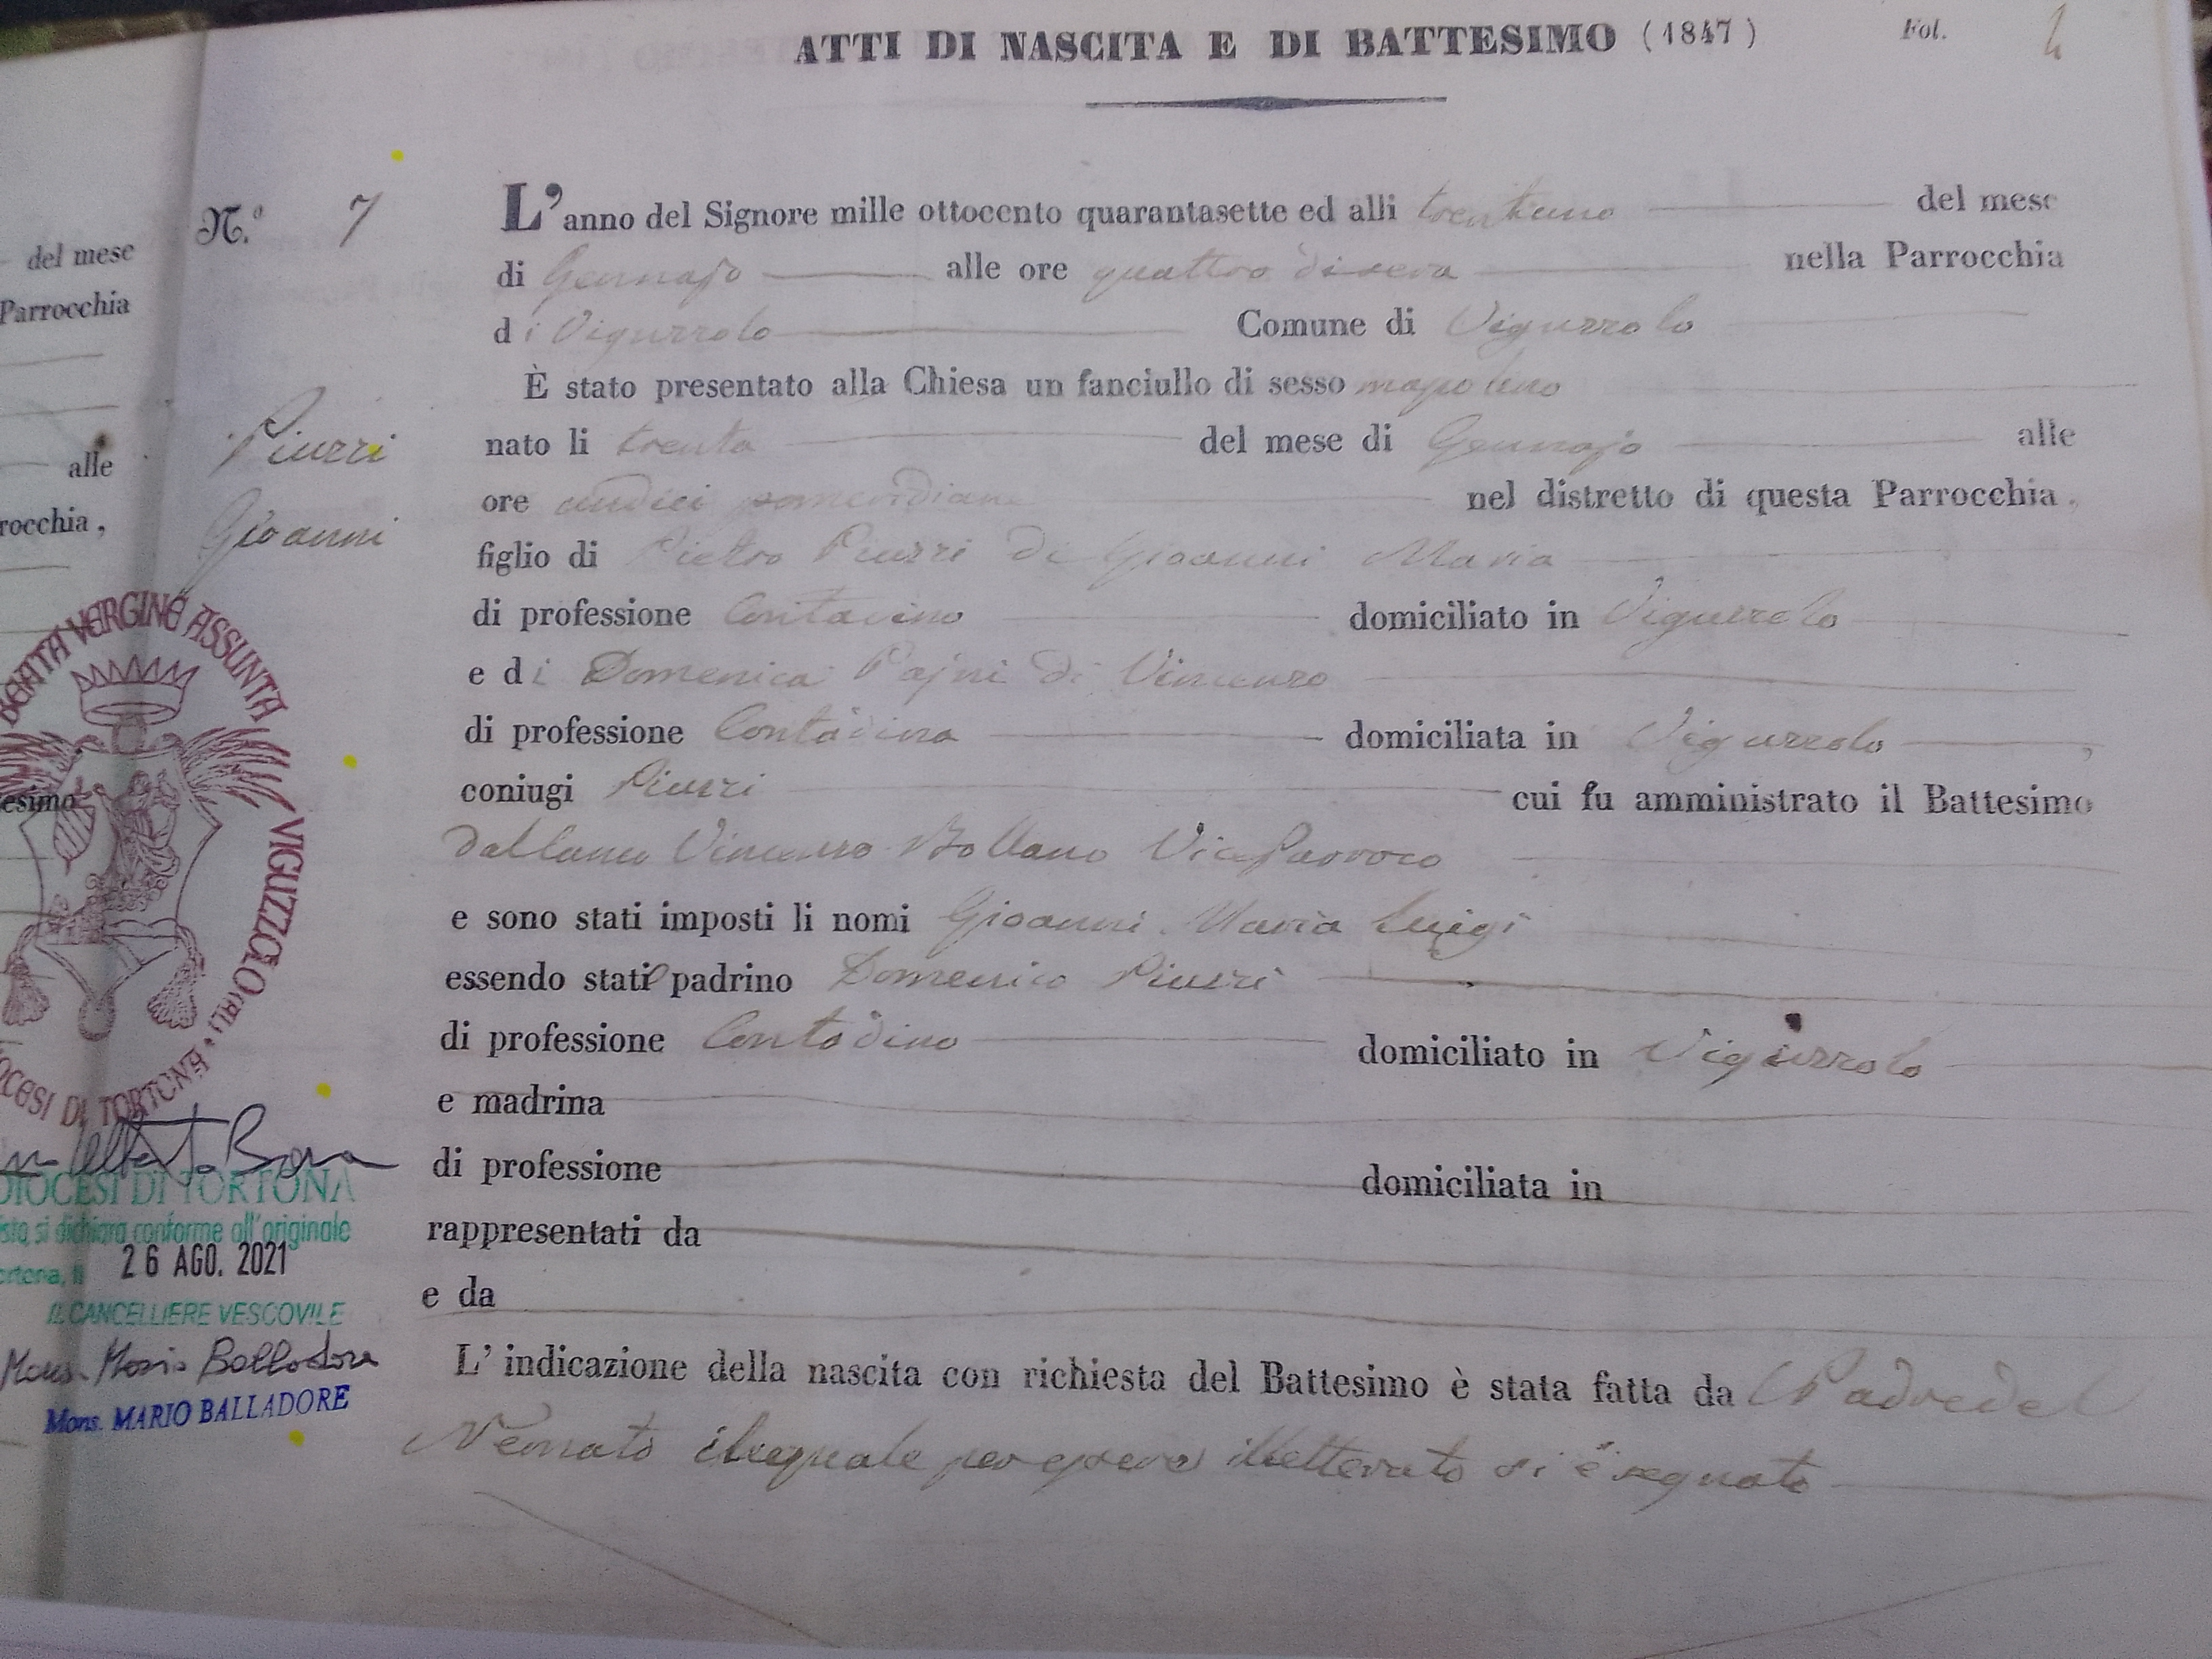 ATTI DI NASCITA E DI BATTESIMO (1847) Fol.
N.º 7
L'anno del Signore mille ottocento quarantasette ed alli trentuno del mese
di Gennajo alle ore quattro di sera nella Parrocchia
di Viguzzolo Comune di Viguzzolo
È stato presentato alla Chiesa un fanciullo di sesso mascolino
Piuzzi
Gioanni
nato li trenta del mese di Gennajo alle
ore undici pomeridiane nel distretto di questa Parrocchia,
figlio di Pietro Piuzzi di Gioanni Maria
di professione Contadino domiciliato in Viguzzolo
e di Domenica Pajni di Vincenzo
di professione Contadina domiciliata in Viguzzolo,
coniugi Piuzzi cui fu amministrato il Battesimo
Vincenzo Bollano Vice Parroco
e sono stati imposti li nomi Gioanni Maria Luigi
essendo stato padrino Domenico Piuzzi
di professione Contadino domiciliato in Viguzzolo
e madrina
di professione domiciliata in
rappresentati da
e da
L'indicazione della nascita con richiesta del Battesimo è stata fatta da l Padre del
Neonato il quale per essere illetterato si è segnato
del mese
Parrocchia
alle
rocchia,
esimo
BEATA VERGINE ASSUNTA VIGUZZOLO (AL) • DIOCESI DI TORTONA
DIOCESI DI TORTONA
si dichiara conforme all'originale
26 AGO. 2021
IL CANCELLIERE VESCOVILE
Mons. Mario Balladore
Mons. MARIO BALLADORE